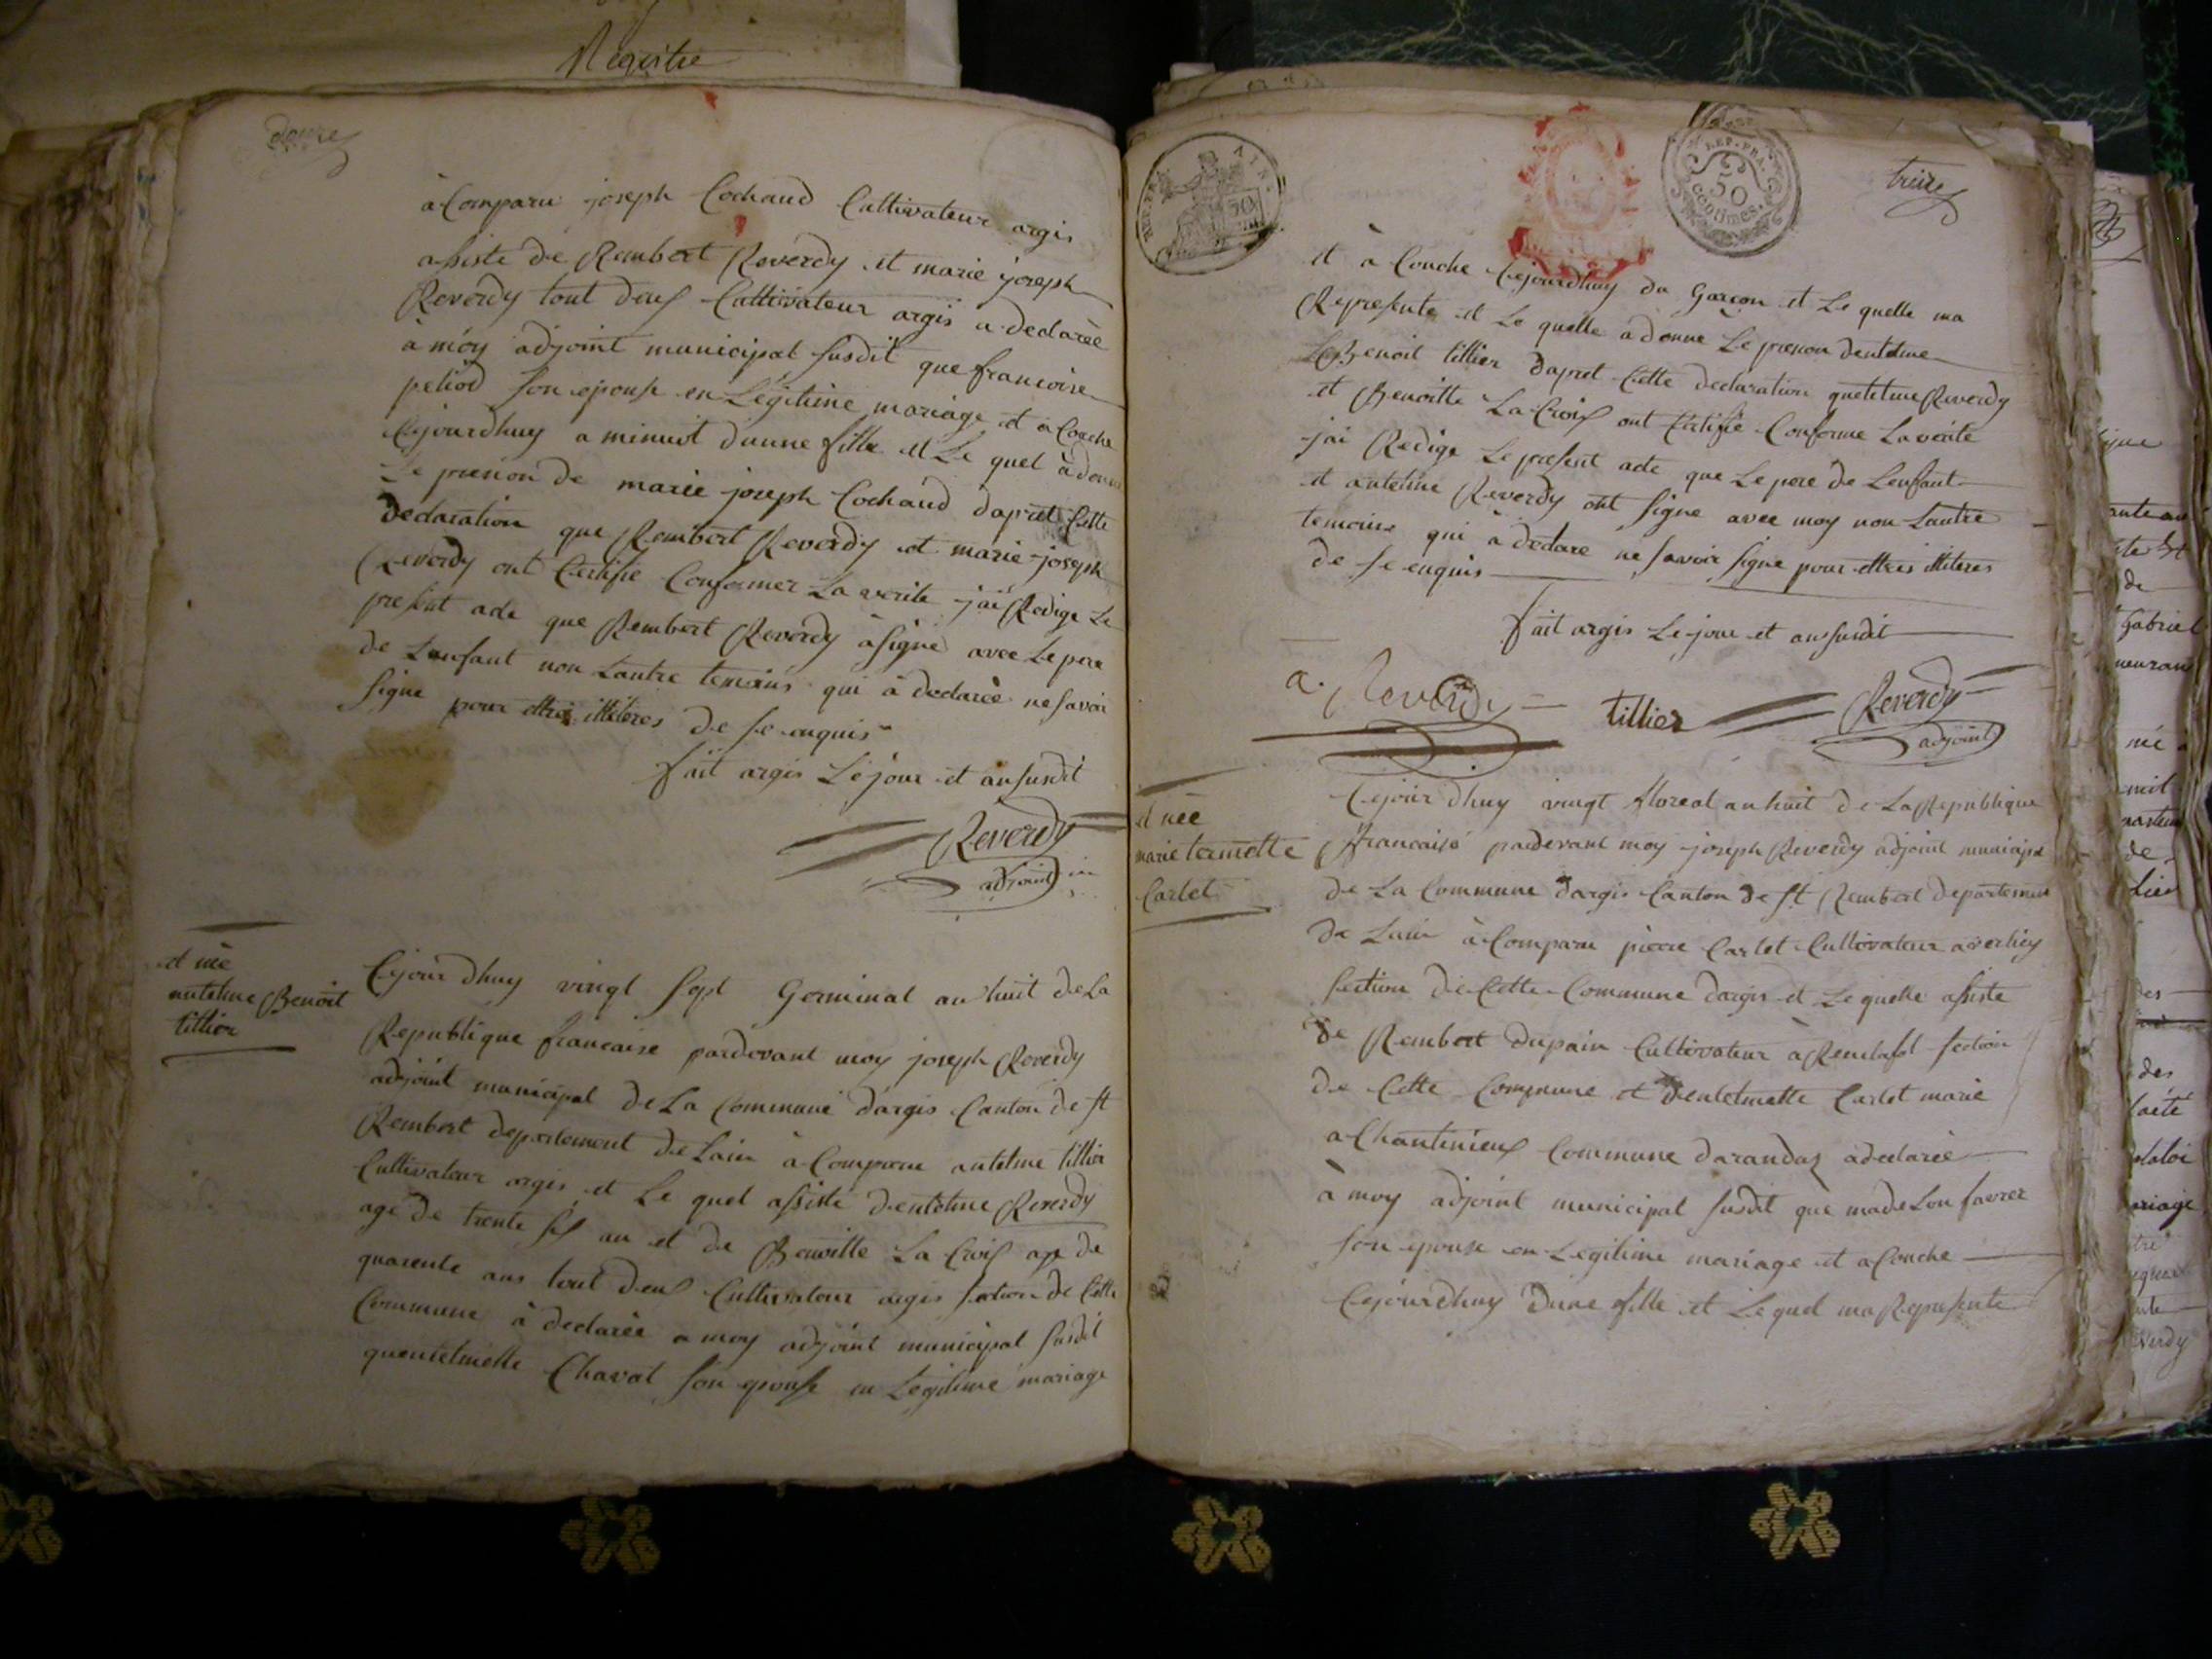 Registre
douze
à Comparu joseph Cochaud Cultivateur argis
assiste de Rembert Reverdy et marie joseph
Reverdy tout deux Cultivateur argis a declarée
à moy adjoint municipal susdit que francoise
petiod son epouse en Légitime mariage et a Couche
Cejourdhuy a minuit dunne fille et Le quel à donné
Le prenon de marie joseph Cochaud dapret Cette
Declaration que Rembert Reverdy et marie joseph
Reverdy ont Certifie Conformer La verite jai Redige Le
present acte que Rembert Reverdy à signé avec Le pere
de Lenfant non Lautre temoins qui à declarée ne savoir
signe pour ettre illiteres de se enquis
fait argis Le jour et an susdit
Reverdy
adjoint
et née
antelme Benoit
tillier
Cejour dhuy vingt sept Germinal an huit de La
Republique francaise pardevant moy joseph Reverdy
adjoint municipal de La Commune dargis Canton de st
Rembert departement de Lain à Comparu antelme tillier
Cultivateur argis et Le quel assisté dentelme Reverdy
age de trente six an et de Benoitte La Croix age de
quarente ans tout deux Cultivateur argis section de Cette
Commune à declarée a moy adjoint municipal susdit
quentelmette Chavat son epouse en Legitime mariage
REP. FRA. AIN.
REP. FRA.
50
centimes.
treize
et à Couche Cejourdhuy du Garçon et Le quelle ma
Represente et Le quelle a donne Le prenon dentelme
Benoit tillier dapret Cette declaration quetelme Reverdy
et Benoitte La Croix ont Certifie Conforme La verite
jai Redige Le present acte que Le pere de Lenfant
et antelme Reverdy ont signe avec moy non Lautre
temoins qui à declare ne savoir signe pour ettres illiteres
de se enquis
fait argis Le jour et an susdit
a. Reverdy
tillier
Reverdy
adjoint
et née
marie termette
Carlet
Cejour dhuy vingt floreal an huit de La Republique
francaise pardevant moy joseph Reverdy adjoint municipal
de La Commune dargis Canton de st Rembert departement
de Lain à Comparu pierre Carlet Cultivateur averliey
section de Cette Commune dargis et Le quelle assiste
de Rembert dupain Cultivateur à section
de Cette Commune et dentelmette Carlet marie
a Chantinieux Commune darandas a declarée
à moy adjoint municipal susdit que madelon favrer
son epouse en Legitime mariage et a Couche
Cejourdhuy dune fille et Le quel ma Represente